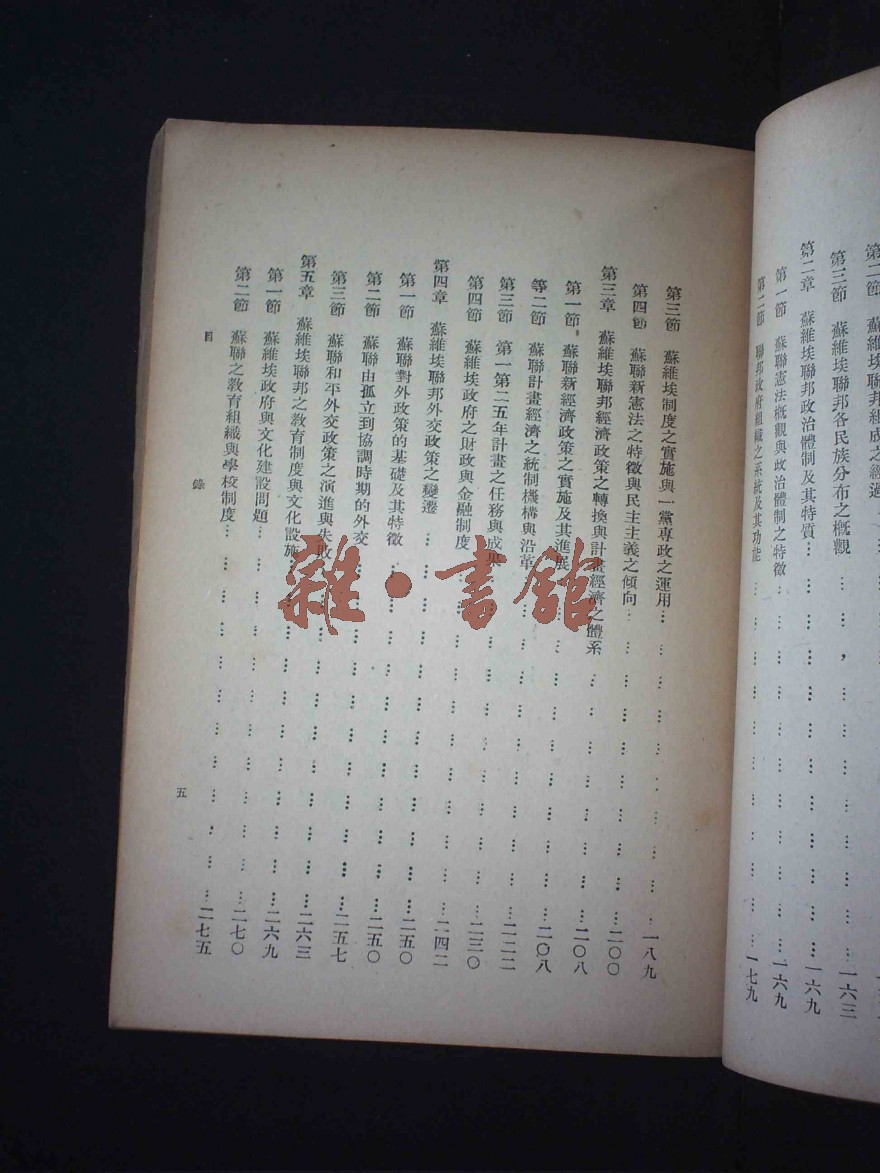 第二節 蘇維埃聯邦組成之經過
第三節 蘇維埃聯邦各民族分布之概觀……一六三
第二章 蘇維埃聯邦政治體制及其特質……一六九
第一節 蘇聯憲法概觀與政治體制之特徵……一六九
第二節 聯邦政府組織之系統及其功能……一七九
第三節 蘇維埃制度之實施與一黨專政之運用……一八九
第四節 蘇聯新憲法之特徵與民主主義之傾向……二〇〇
第三章 蘇維埃聯邦經濟政策之轉換與計畫經濟之體系……二〇八
第一節 蘇聯新經濟政策之實施及其進展……二〇八
等二節 蘇聯計畫經濟之統制機構與沿革……二二二
第三節 第一第二五年計畫之任務與成果……二三〇
第四節 蘇維埃政府之財政與金融制度……二四二
第四章 蘇維埃聯邦外交政策之變遷……二五〇
第一節 蘇聯對外政策的基礎及其特徵……二五〇
第二節 蘇聯由孤立到協調時期的外交……二五七
第三節 蘇聯和平外交政策之演進與失敗……二六三
第五章 蘇維埃聯邦之教育制度與文化設施……二六九
第一節 蘇維埃政府與文化建設問題……二七〇
第二節 蘇聯之教育組織與學校制度……二七五
目 錄
五
雜·書館